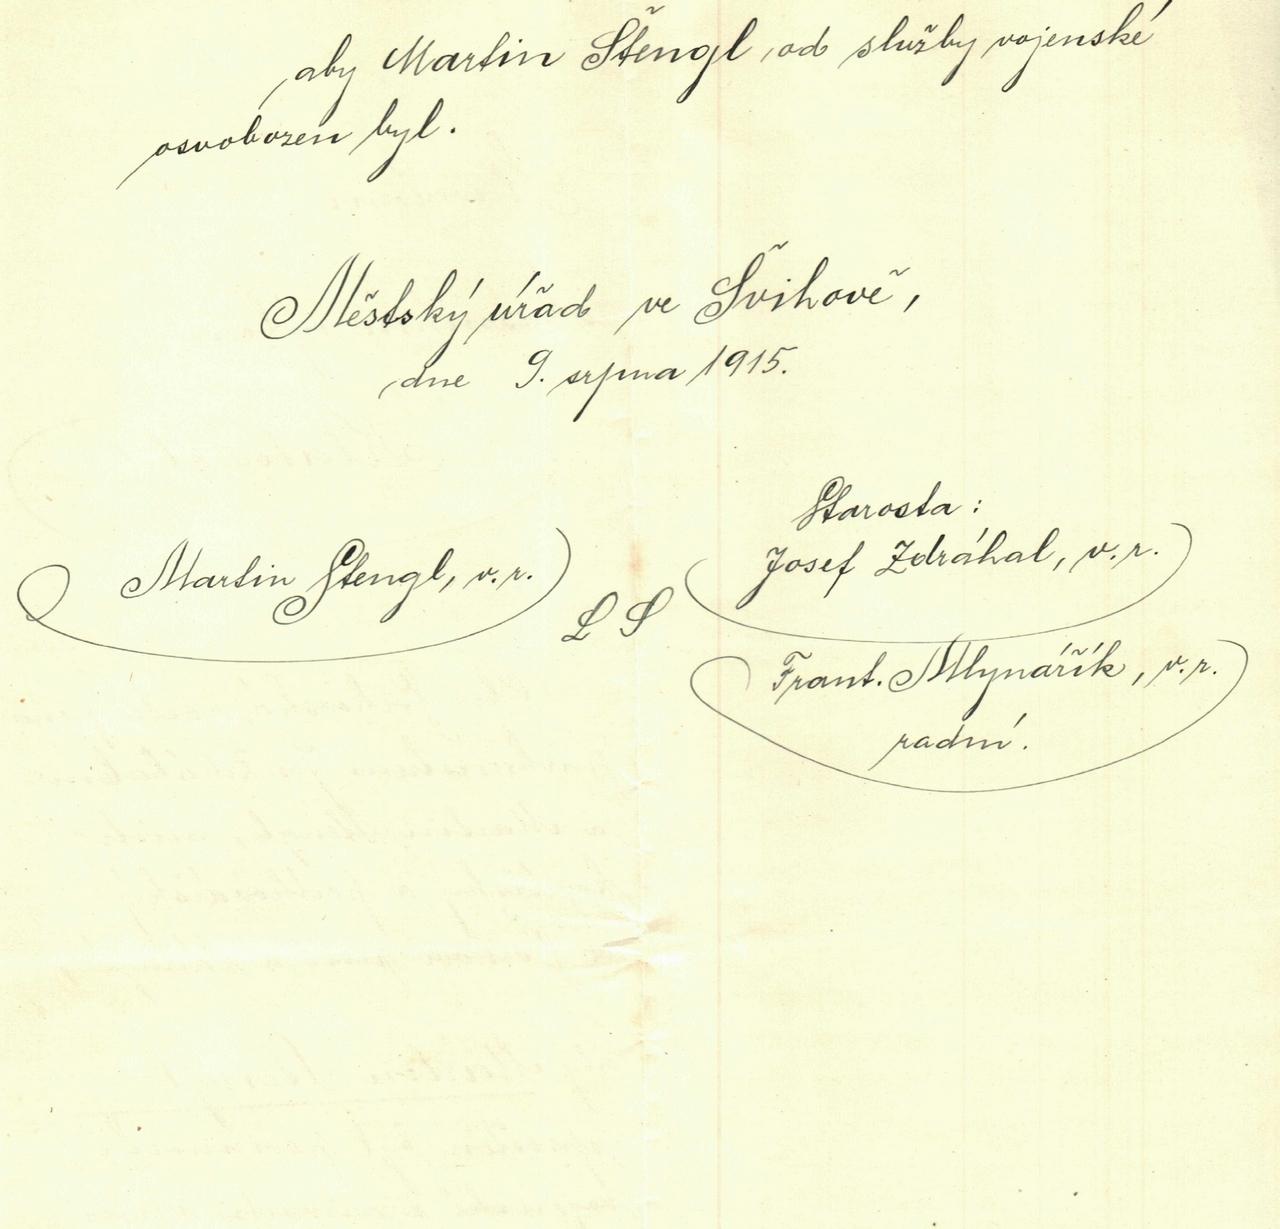 aby Martin Štengl od služby vojenské
osvobozen byl.
Městský úřad ve Švihově,
dne 9. srpna 1915.
Starosta:
Martin Stengl, v.r.
L S
Josef Zdráhal, v.r.
Frant. Mlynářík, v.r.
radní.